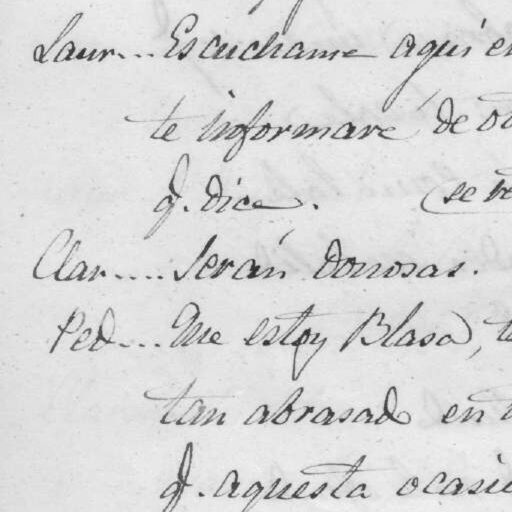 Laur... Escuchame aqui en
te informaré de
q. dice. (se
Clar.... Serán donosas.
Ped... Me estoy Blasa,
tan abrasado en
q. aquesta ocasi